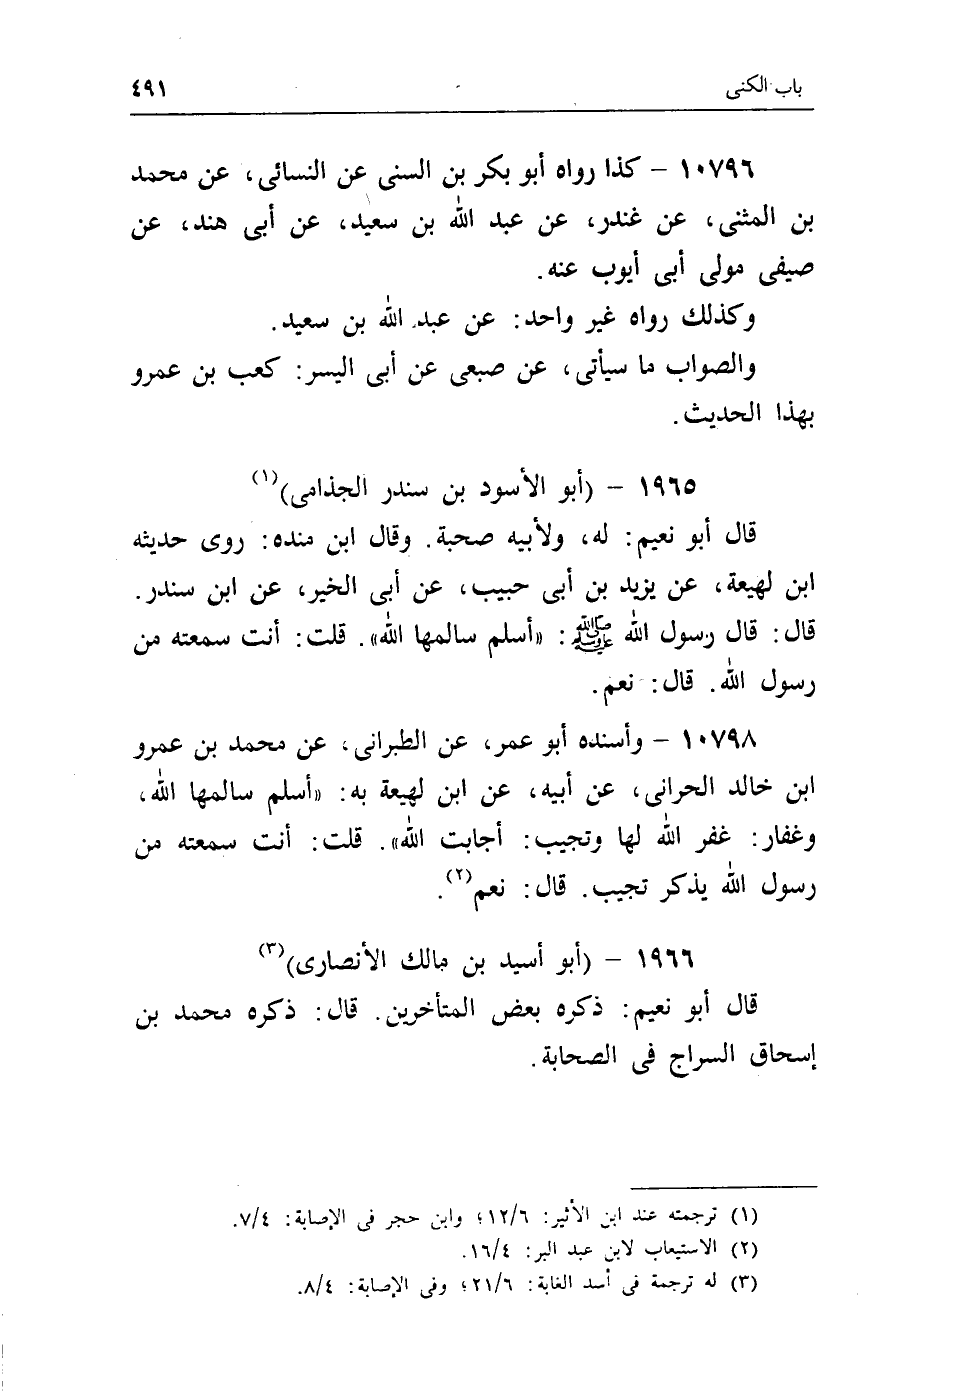 باب الكنى ٤٩١
١٠٧٩٦ – كذا رواه أبو بكر بن السنى عن النسائى، عن محمد
بن المثنى، عن غندر، عن عبد الله بن سعيد، عن أبى هند، عن
صيفى مولى أبى أيوب عنه.
وكذلك رواه غير واحد: عن عبد الله بن سعيد.
والصواب ما سيأتى، عن صبعى عن أبى اليسر: كعب بن عمرو
بهذا الحديث.
١٩٦٥ – (أبو الأسود بن سندر الجذامى)(١)
قال أبو نعيم: له، ولأبيه صحبة. وقال ابن منده: روى حديثه
ابن لهيعة، عن يزيد بن أبى حبيب، عن أبى الخير، عن ابن سندر.
قال: قال رسول الله ﷺ: «أسلم سالمها الله». قلت: أنت سمعته من
رسول الله. قال: نعم.
١٠٧٩٨ – وأسنده أبو عمر، عن الطبرانى، عن محمد بن عمرو
ابن خالد الحرانى، عن أبيه، عن ابن لهيعة به: «أسلم سالمها الله،
وغفار: غفر الله لها وتجيب: أجابت الله». قلت: أنت سمعته من
رسول الله يذكر تجيب. قال: نعم(٢).
١٩٦٦ – (أبو أسيد بن مالك الأنصارى)(٣)
قال أبو نعيم: ذكره بعض المتأخرين. قال: ذكره محمد بن
إسحاق السراج فى الصحابة.
(١) ترجمته عند ابن الأثير: ١٢/٦؛ وابن حجر فى الإصابة: ٧/٤.
(٢) الاستيعاب لابن عبد البر: ١٦/٤.
(٣) له ترجمة فى أسد الغابة: ٢١/٦؛ وفى الإصابة: ٨/٤.